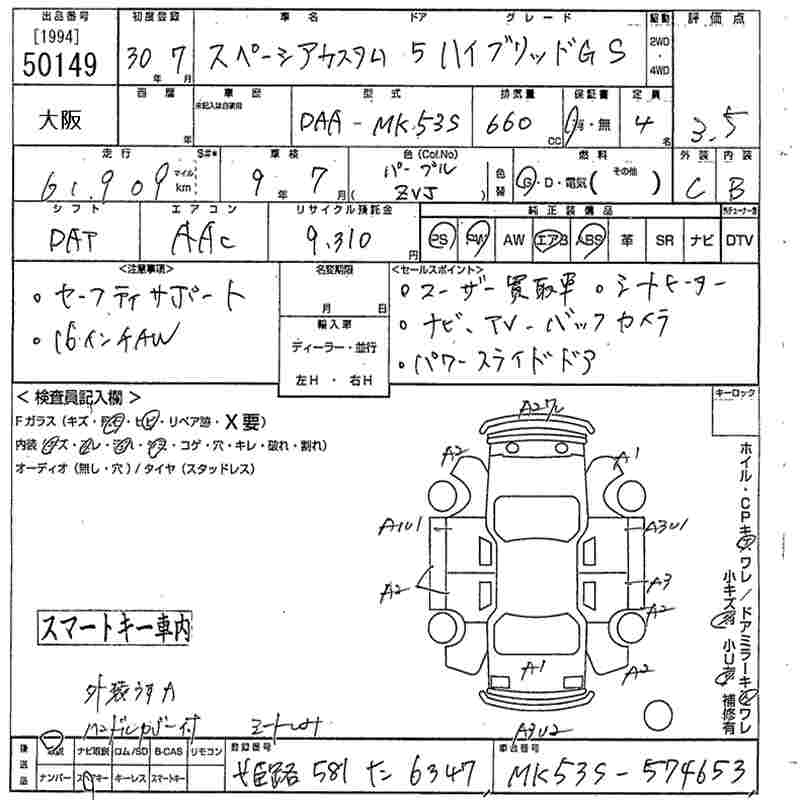 出品番号 初度登録 車名 ドア グレード 駆動 評価点
[1994]
50149
30年 7月 スペーシアカスタム 5 ハイブリッドGS 2WD・4WD
大阪 西暦 年 車歴 未記入は自家用 型式 排気量 保証書 定員
DAA-MK53S 660CC 有・無 4名 3.5
走行 S#* 車検 色(Col.No) 色替 燃料 外装 内装
61.909 マイル km 9年 7月 パープル (ZVJ) G・D・電気(その他) C B
シフト エアコン リサイクル預託金 純正装備品
DAT AAC 9,310円 PS PW AW エアB ABS 革 SR ナビ DTV
<注意事項> 名変期限 <セールスポイント>
・セーフティサポート
・16インチAW
月 日
輸入車
ディーラー・並行
左H・右H
・ユーザー買取車 ・シートヒーター
・ナビ、AV-バックカメラ
・パワースライドドア
<検査員記入欄> キーロック
Fガラス(キズ・飛石・ヒビ・リペア跡・X要)
内装(キズ・ヨレ・コゲ・穴・キレ・破れ・割れ)
オーディオ(無し・穴)/タイヤ(スタッドレス)
A2ワレ
A2 A1
A1U1 A3U1
A2 A3
A2
A1 A2
A3U2
ホイル・CPキズ ワレ/ドアミラーキズ ワレ
小キズ 小U 補修有
スマートキー車内
外装うすA
ハンドルカバー付
シートしみ
後送品 取説 ナビ取説 ロム/SD B-CAS リモコン 登録番号 車台番号
ナンバー スペアキー キーレス スマートキー 姫路 581 た 6347 MK53S-574653